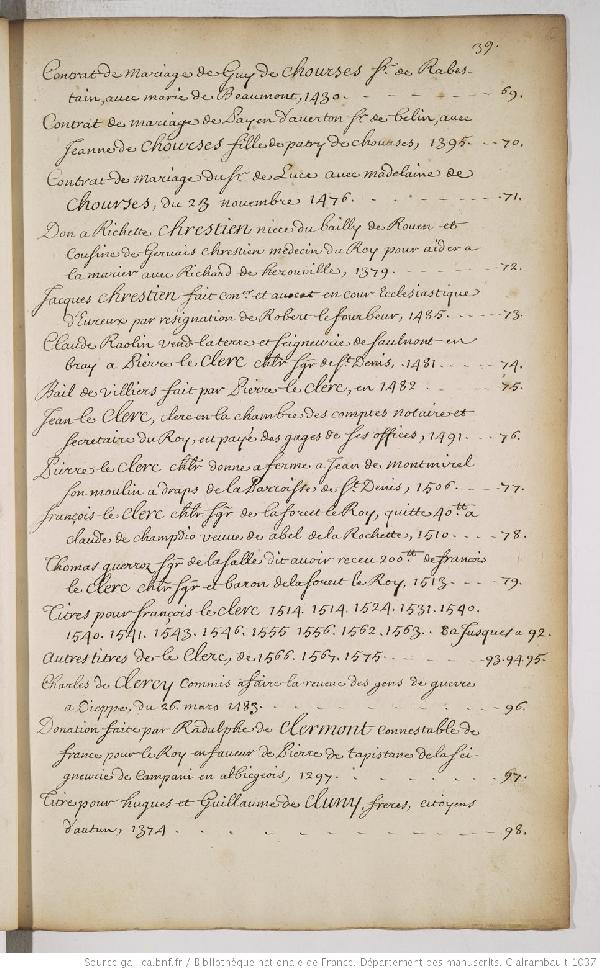 39.
Contrat de mariage de Guy de Chourses sr. de Rabes-
tain, avec marie de Beaumont, 1430. 69.
Contrat de mariage de Payen d'averton sr. de belin, avec
Jeanne de Chourses fille de patry de chourses, 1395. 70.
Contrat de mariage du sr. de Luce avec madelaine de
Chourses, du 23 novembre 1476. 71.
Don a Richette Chrestien niece du bailly de Rouen et
Cousine de Gervais chrestien medecin du Roy pour aider a
la marier avec Richard de herouville, 1379. 72.
Jacques Chrestien fait et avocat en cour Ecclesiastique
d'Evreux par resignation de Robert le fourbeur, 1485. 73.
Claude Raolin vend la terre et seigneurie de saulmont en
bray a Pierre le Clerc chlr sgr de St. Denis, 1481 74.
Bail de villiers fait par Pierre le Clerc, en 1482 75.
Jean le Clerc, clerc en la chambre des comptes notaire et
secretaire du Roy, est payé des gages de ses offices, 1491. 76.
Pierre le Clerc chlr donne a ferme a Jean de montmirel
son moulin a draps de la Parroisse de St. Denis, 1506 77.
françois le Clerc chlr sgr de la forest le Roy, quitte 40tt a
claude de champdio veuve de abel de la Rochette, 1510 78.
Thomas sgr de la salle dit avoir receu 200tt de françois
le Clerc chlr sgr et baron de la forest le Roy, 1513 79.
Titres pour françois le Clerc 1514. 1514. 1524. 1531. 1540.
1540. 1541. 1543. 1546. 1555 1556. 1562. 1563. 80 Jusques a 92.
Autres titres de le Clerc, de 1566. 1567. 1575. 93. 94. 95.
Charles de Clercy commis a faire la reveue des gens de guerre
a Dieppe, du 26. mars 1483. 96.
Donation faite par Radulphe de Clermont connestable de
france pour le Roy en faveur de Pierre de tapistane de la sei-
gneurie de Campani en albigeois, 1297. 97.
Titre pour hugues et Guillaume de Cluny, freres, citoyens
d'autun, 1374. 98.
Source gallica.bnf.fr / Bibliothèque nationale de France. Département des manuscrits. Clairambault 1037